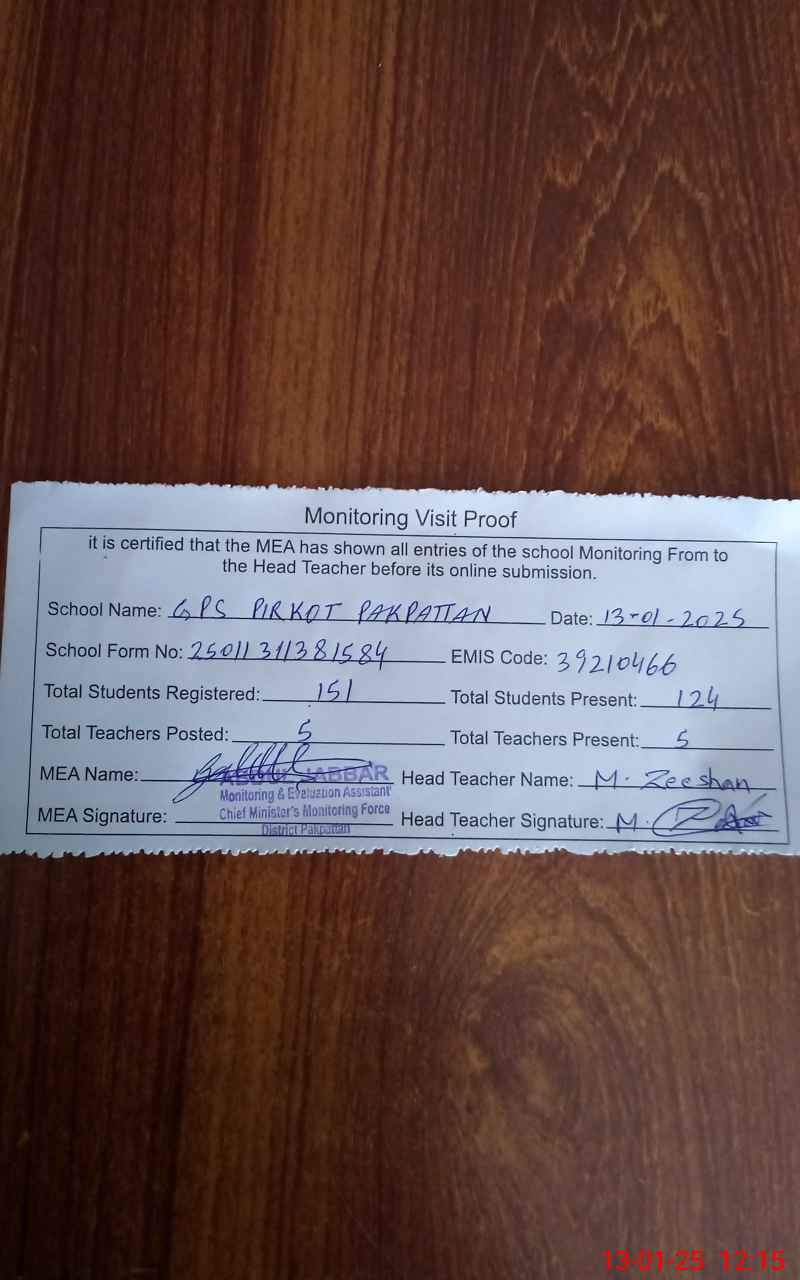 Monitoring Visit Proof
it is certified that the MEA has shown all entries of the school Monitoring From to
the Head Teacher before its online submission.
School Name: GPS PIRKOT PAKPATTAN Date: 13-01-2025
School Form No: 25011311381584 EMIS Code: 39210466
Total Students Registered: 151 Total Students Present: 124
Total Teachers Posted: 5 Total Teachers Present: 5
MEA Name: JABBAR Head Teacher Name: M. Zeeshan
Monitoring & Evaluation Assistant
MEA Signature: Chief Minister's Monitoring Force Head Teacher Signature: M.
District Pakpattan
13-01-25 12:15